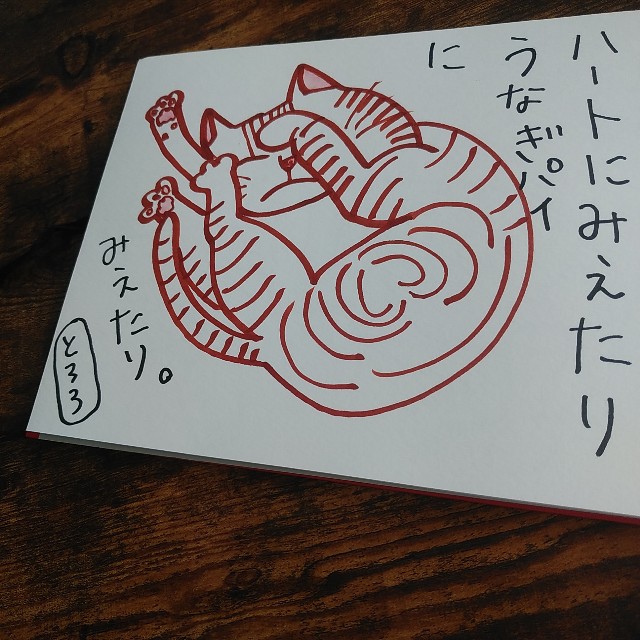 ハートにみえたり
うなぎパイ
に
みえたり。
とろろ